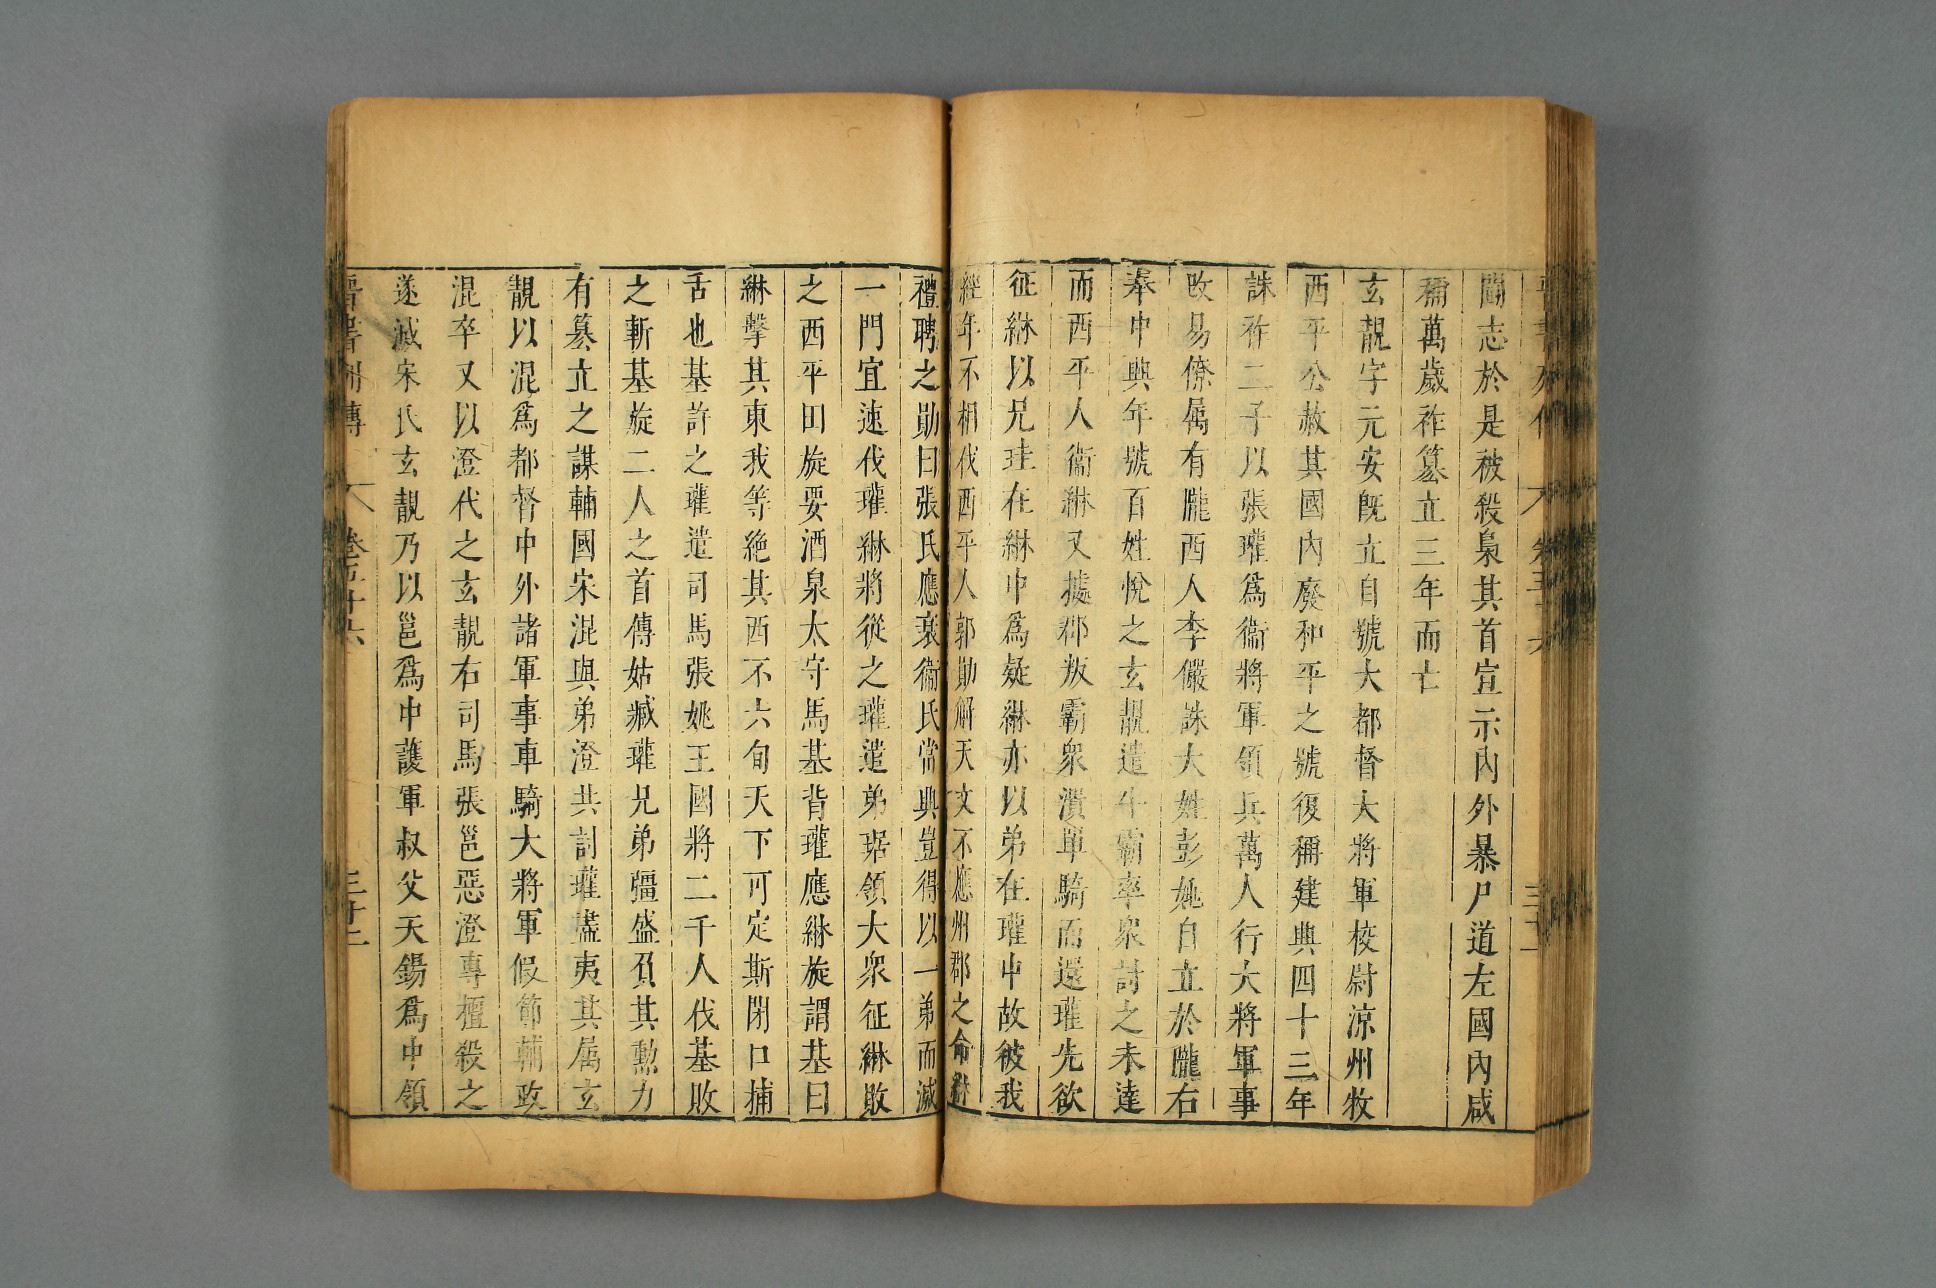 鬬志於是被殺梟其首宣示內外暴尸道左國內咸
稱萬歲祚篡立三年而亡
玄靚字元安旣立自號大都督大將軍校尉涼州牧
西平公赦其國內廢和平之號復稱建興四十三年
誅祚二子以張瓘爲衞將軍領兵萬人行大將軍事
改易僚属有隴西人李儼誅大姓彭姚自立於隴右
奉中興年號百姓悅之玄靚遣牛霸率衆討之未達
而西平人衞綝又據郡叛霸衆潰單騎而還瓘先欲
征綝以兄珪在綝中爲疑綝亦以弟在瓘中故彼我
經年不相伐西平人郭勛解天文不應州郡之命綝
禮聘之勛曰張氏應衰衞氏當興豈得以一弟而滅
一門宜速伐瓘綝將從之瓘遣弟琚領大衆征綝敗
之西平田旋要酒泉太守馬基背瓘應綝旋謂基曰
綝擊其東我等絶其西不六旬天下可定斯閉口捕
舌也基許之瓘遣司馬張姚王國將二千人伐基敗
之斬基旋二人之首傳姑臧瓘兄弟彊盛負其勲力
有篡立之謀輔國宋混與弟澄共討瓘盡夷其属玄
靚以混爲都督中外諸軍事車騎大將軍假節輔政
混卒又以澄代之玄靚右司馬張邕惡澄專擅殺之
遂滅宋氏玄靚乃以邕爲中護軍叔父天錫爲中領
晉書列傳 卷五十六 三十二